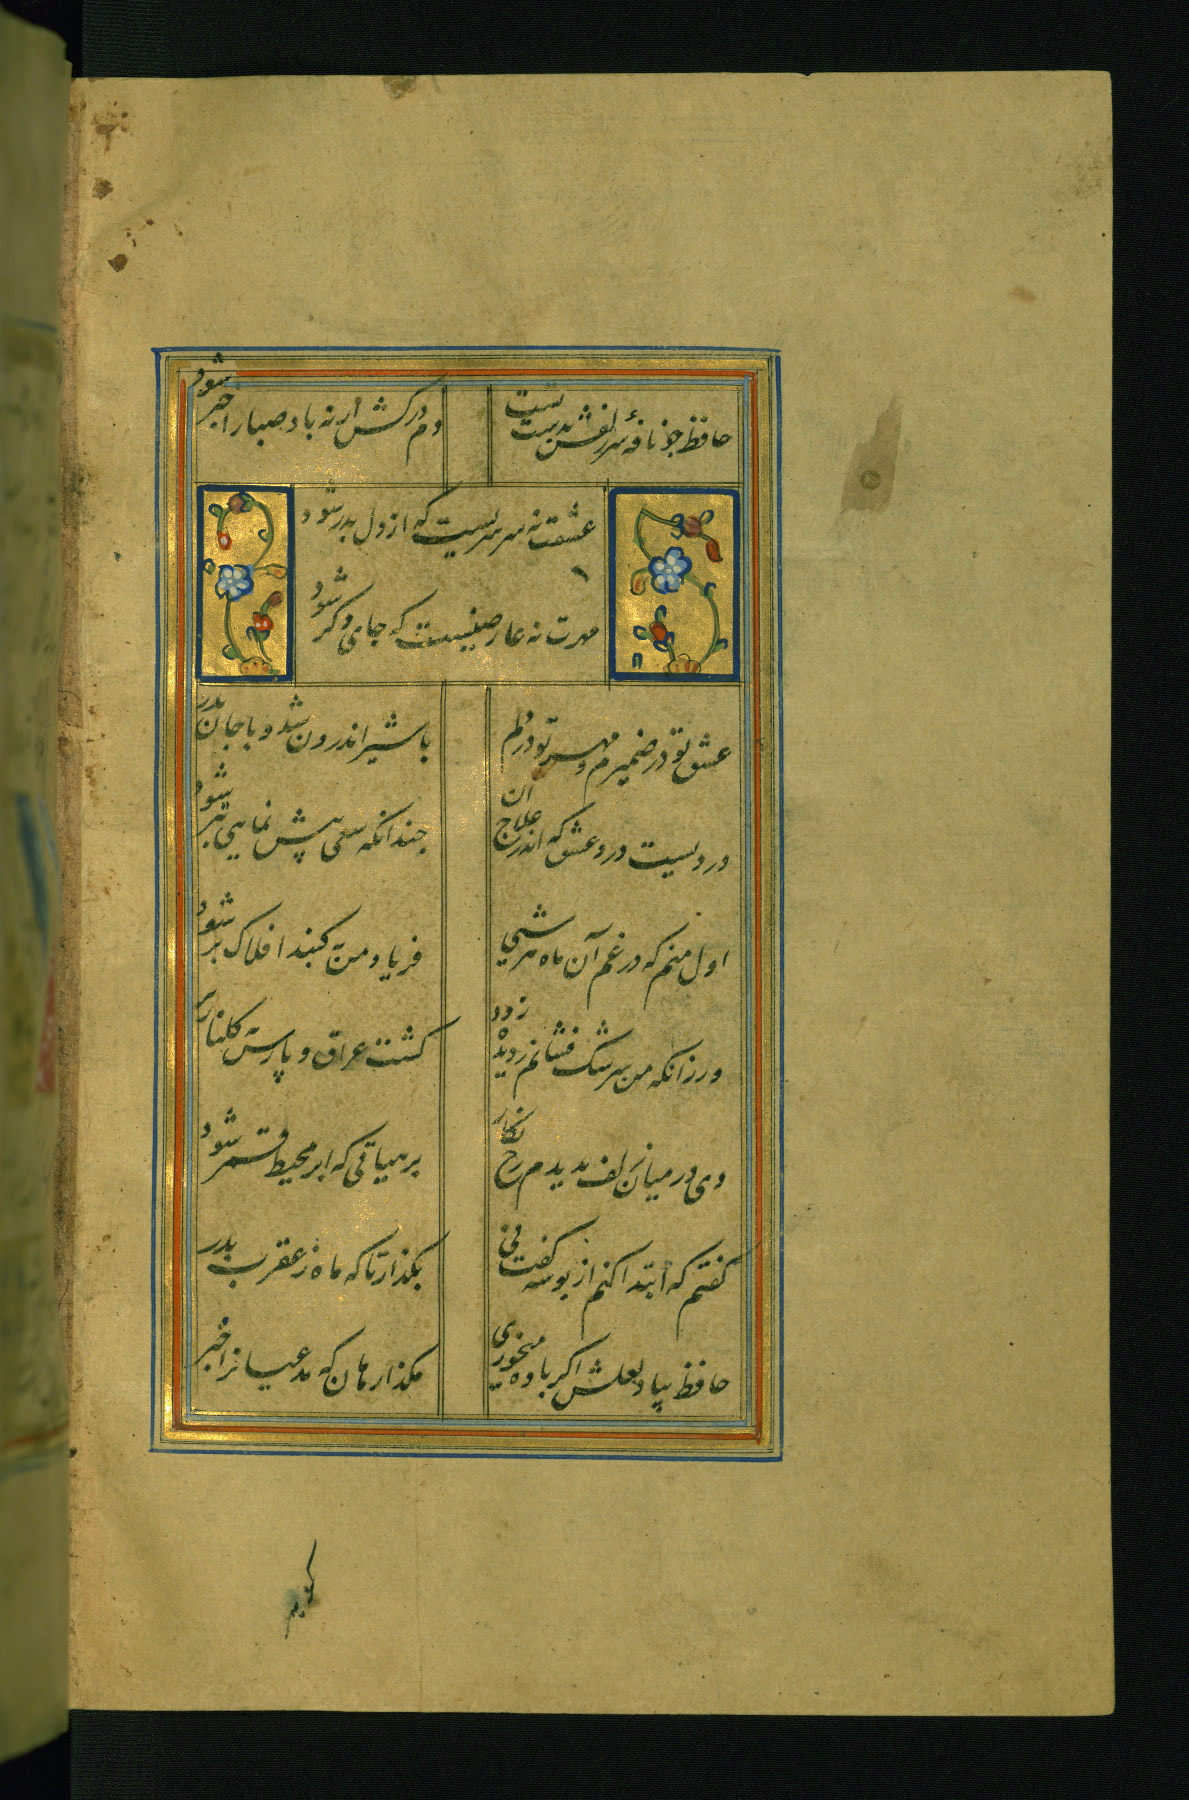 حافظ چو نافهٔ سر زلفش بدست تست
دم درکش ار نه باد صبا را خبر شود
عشقت نه سرسریست که از دل بدر شود
مهرت نه عارضیست که جای دگر شود
عشق تو در ضمیرم و مهر تو در دلم
با شیر اندرون شد و با جان بدر
دردیست درد عشق که اندر علاج ان
چندانکه سعی پیش نمایی بتر شود
اول منم که در غم آن ماه هر شبی
فریاد من بگنبد افلاک بر شود
ورزانکه من سرشک فشانم ز دیده زود
کشت عراق و پارس
دی در میان زلف بدیدم رخ نگار
بر هیاتی که ابر محیط قمر شود
گفتم که ابتدا کنم از بوسه گفت نی
بگذار تا که ماه ز عقرب بدر
حافظ بیاد لعلش اگر باده میخوری
مگذار هان که مدعیانرا خبر